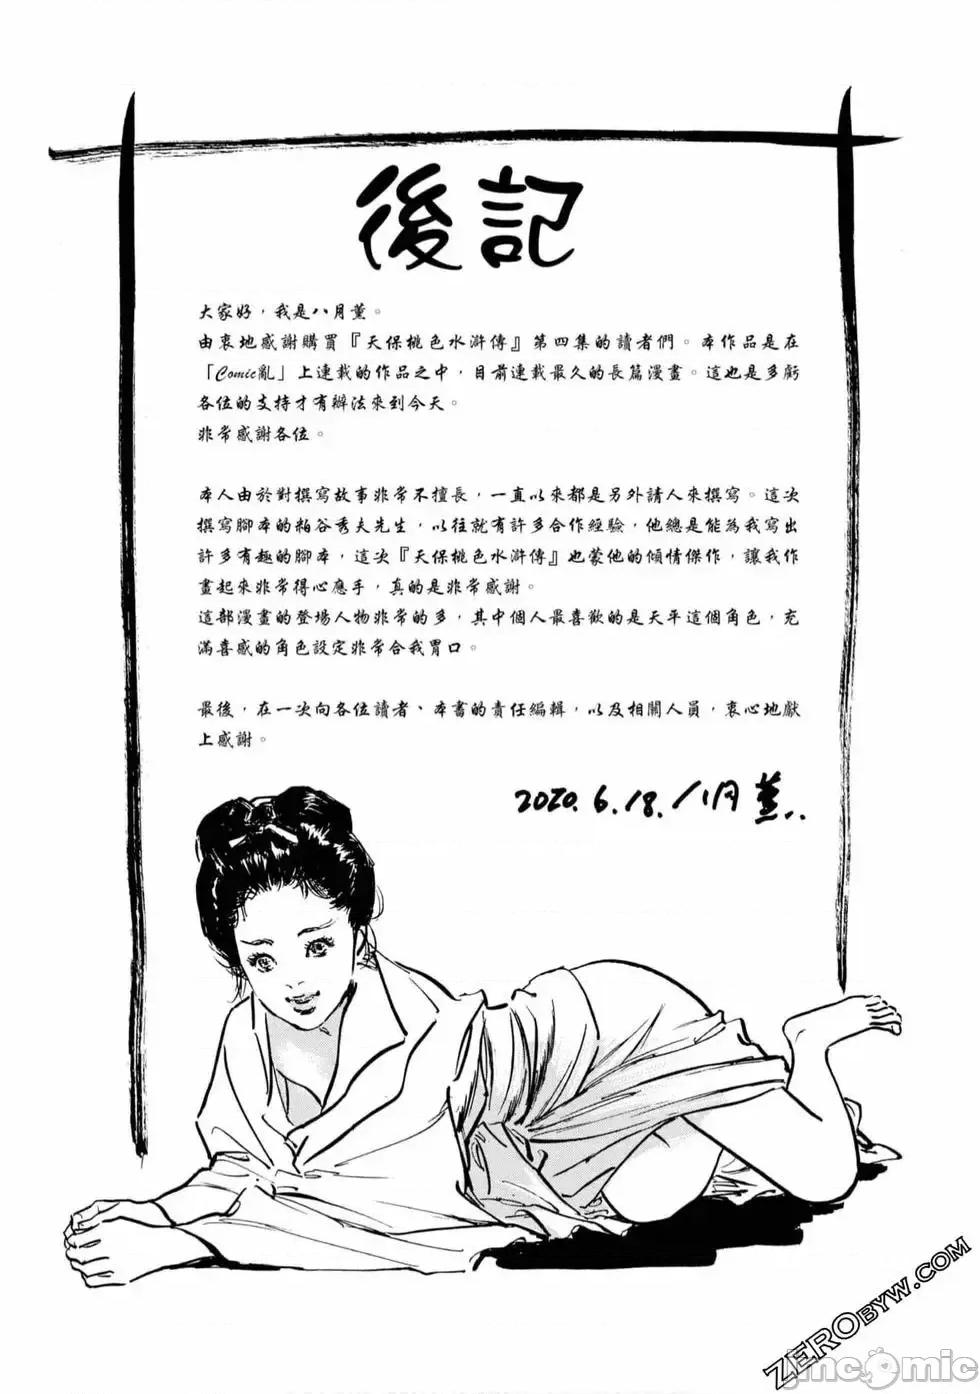 後記
大家好，我是八月薫。
由衷地感謝購買『天保桃色水滸傳』第四集的讀者們。本作品是在
「Comic亂」上連載的作品之中，目前連載最久的長篇漫畫。這也是多虧
各位的支持才有辦法來到今天。
非常感謝各位。
本人由於對撰寫故事非常不擅長，一直以來都是另外請人來撰寫。這次
撰寫腳本的粕谷秀夫先生，以往就有許多合作經驗，他總是能為我寫出
許多有趣的腳本，這次『天保桃色水滸傳』也蒙他的傾情傑作，讓我作
畫起來非常得心應手，真的是非常感謝。
這部漫畫的登場人物非常的多，其中個人最喜歡的是天平這個角色，充
滿喜感的角色設定非常合我胃口。
最後，在一次向各位讀者、本書的責任編輯，以及相關人員，衷心地獻
上感謝。
2020.6.18.八月薫..
ZEROBYW.COM
jmcomic